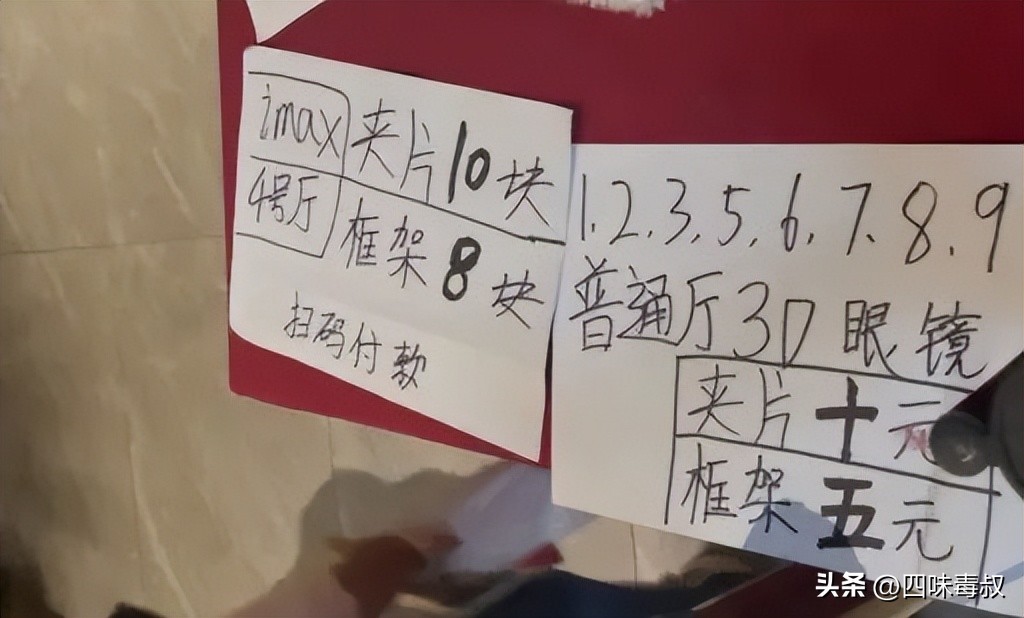 imax 夹片10块
4号厅 框架8块
扫码付款
1.2.3.5.6.7.8.9
普通厅3D眼镜
夹片十元
框架五元
头条@四味毒叔